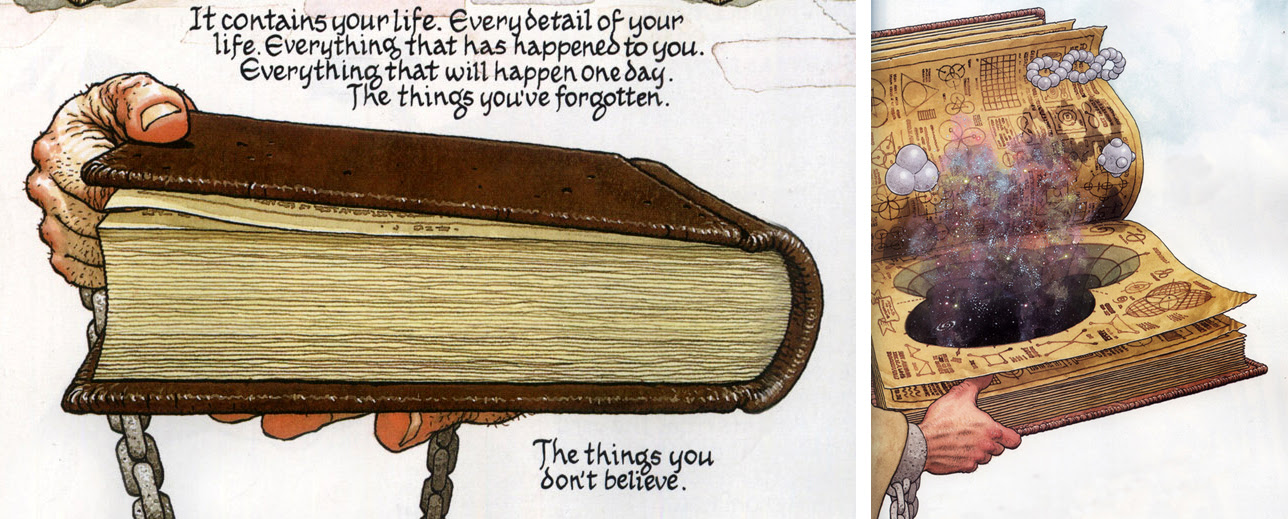 It contains your life. Every detail of your
life. Everything that has happened to you.
Everything that will happen one day.
The things you've forgotten.
The things you
don't believe.